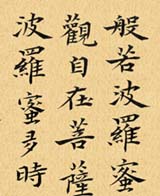 般若波羅蜜
觀自在菩薩
波羅蜜多時